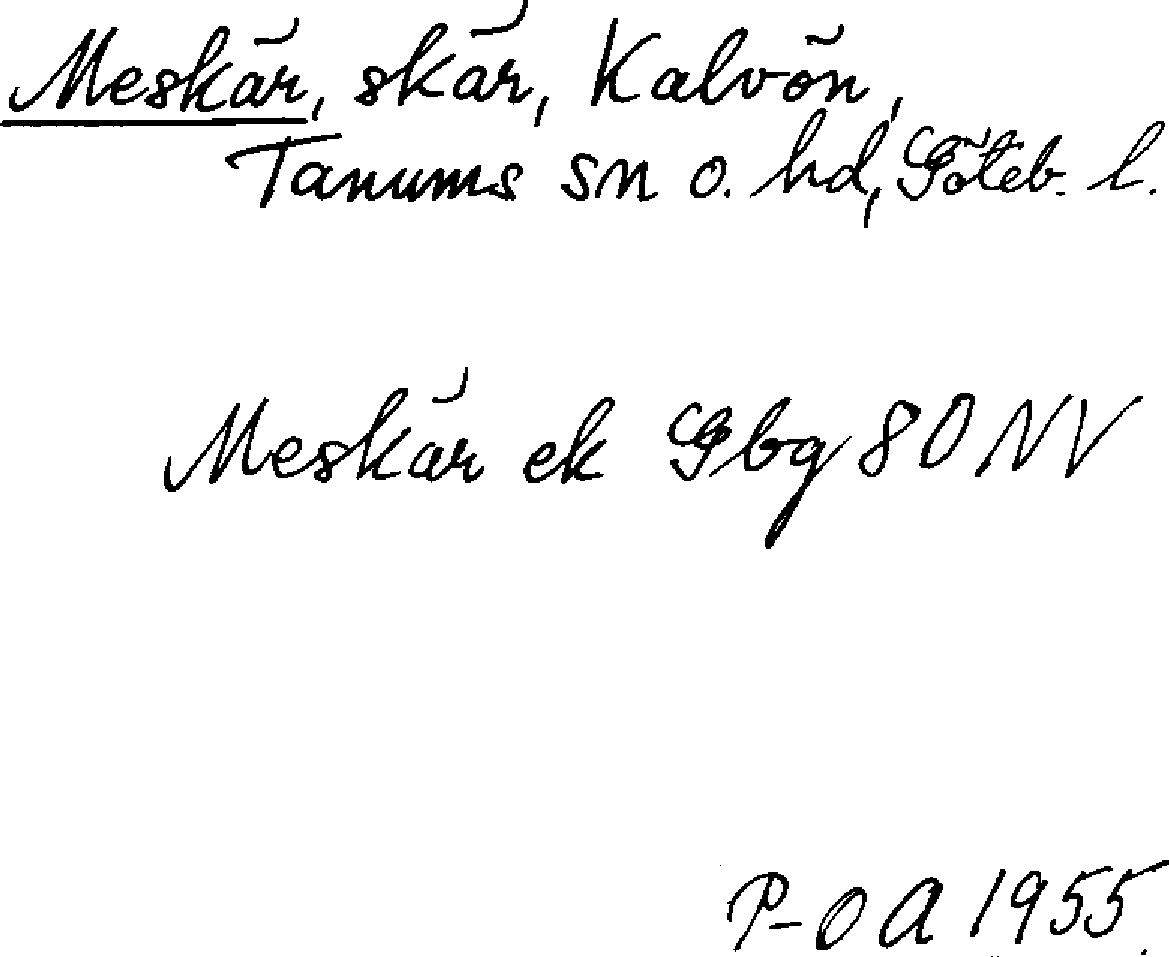 Meskär, skär, Kalvön,
Tanums sn o. hd, Göteb. l.
Meskär ek Gbg 80 NV
P-O A 1955.